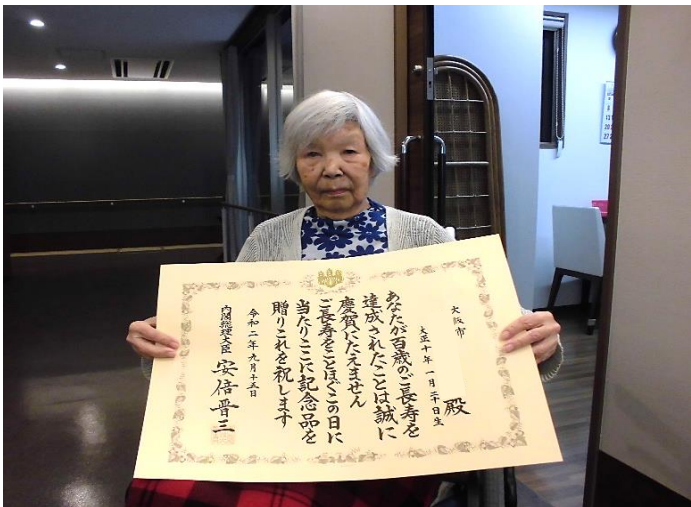 大阪市
殿
大正十年一月二十日生
あなたが百歳のご長寿を
達成されたことは誠に
慶賀にたえません
ご長寿をことほぐこの日に
当たりここに記念品を
贈りこれを祝します
令和二年九月十五日
内閣総理大臣 安倍晋三